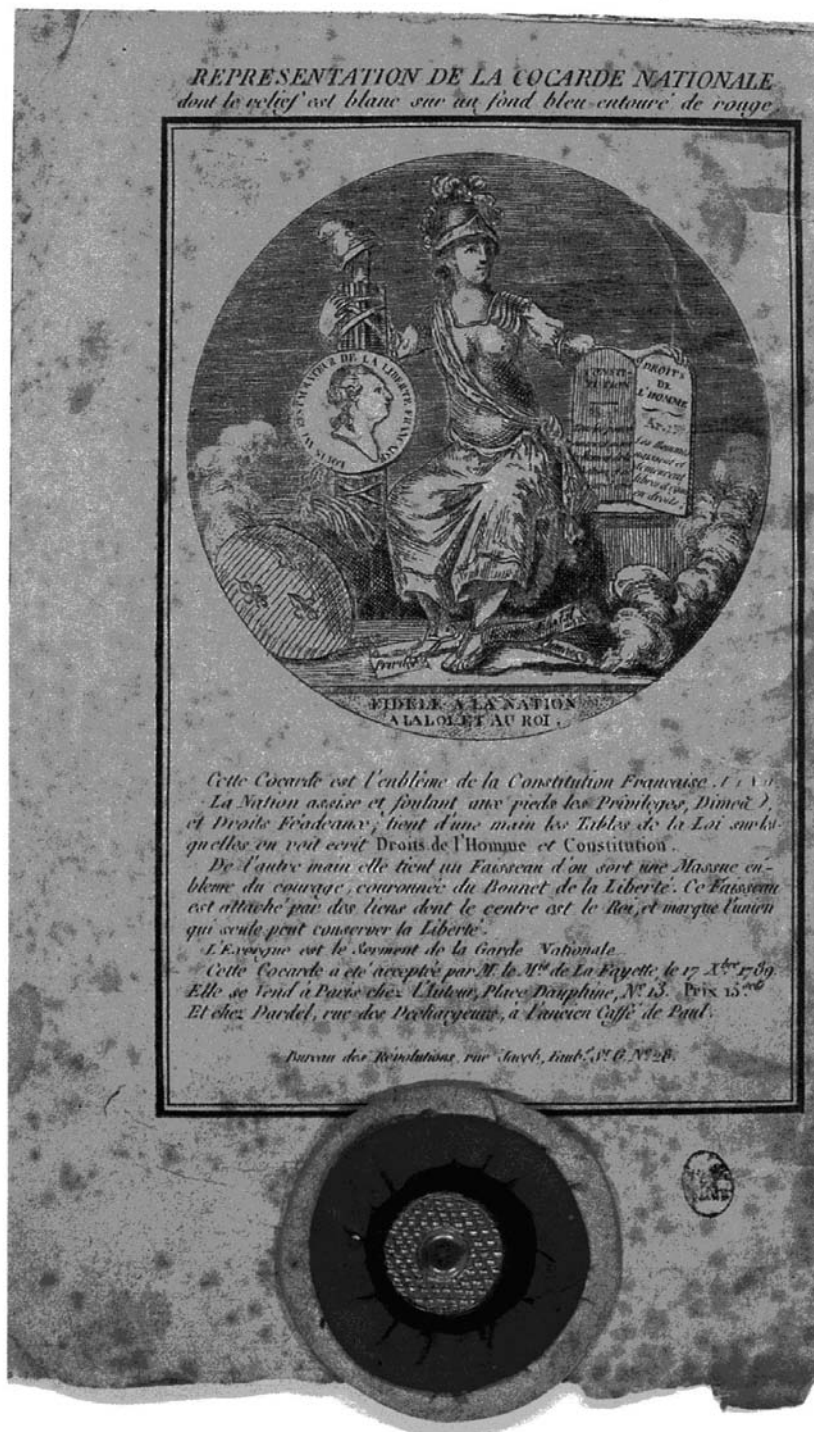 REPRESENTATION DE LA COCARDE NATIONALE
dont le relief est blanc sur un fond bleu entouré de rouge.
LOUIS XVI RESTAURATEUR DE LA LIBERTÉ FRANÇAISE
CONSTI-
TUTION
DROITS
DE
L'HOMME
Les Hommes
naissent et
demeurent
libres
en droits
FIDELE A LA NATION
A LA LOI ET AU ROI.
Cette Cocarde est l'enblême de la Constitution Francaise.
La Nation assise et foulant aux pieds les Privileges, Dimes,
et Droits Féodeaux; tient d'une main les Tables de la Loi sur les-
quelles on voit ecrit Droits de l'Homme et Constitution.
De l'autre main elle tient un Faisseau d'ou sort une Massue en-
bleme du courage, couronnée du Bonnet de la Liberté. Ce Faisseau
est attaché par des liens dont le centre est le Roi, et marque l'union
qui seule peut conserver la Liberté.
L'Exergue est le Serment de la Garde Nationale
Cette Cocarde a été acceptée par M. le M.is de La Fayette, le 17 X.bre 1789.
Elle se Vend à Paris chez L'Auteur, Place Dauphine, N.º 13. Prix 15
Et chez Dardel, rue des Dechargeurs, à l'ancien Caffé de Paul.
Bureau des Révolutions, rue Jacob, Faub.g S.t G. N.º 28.